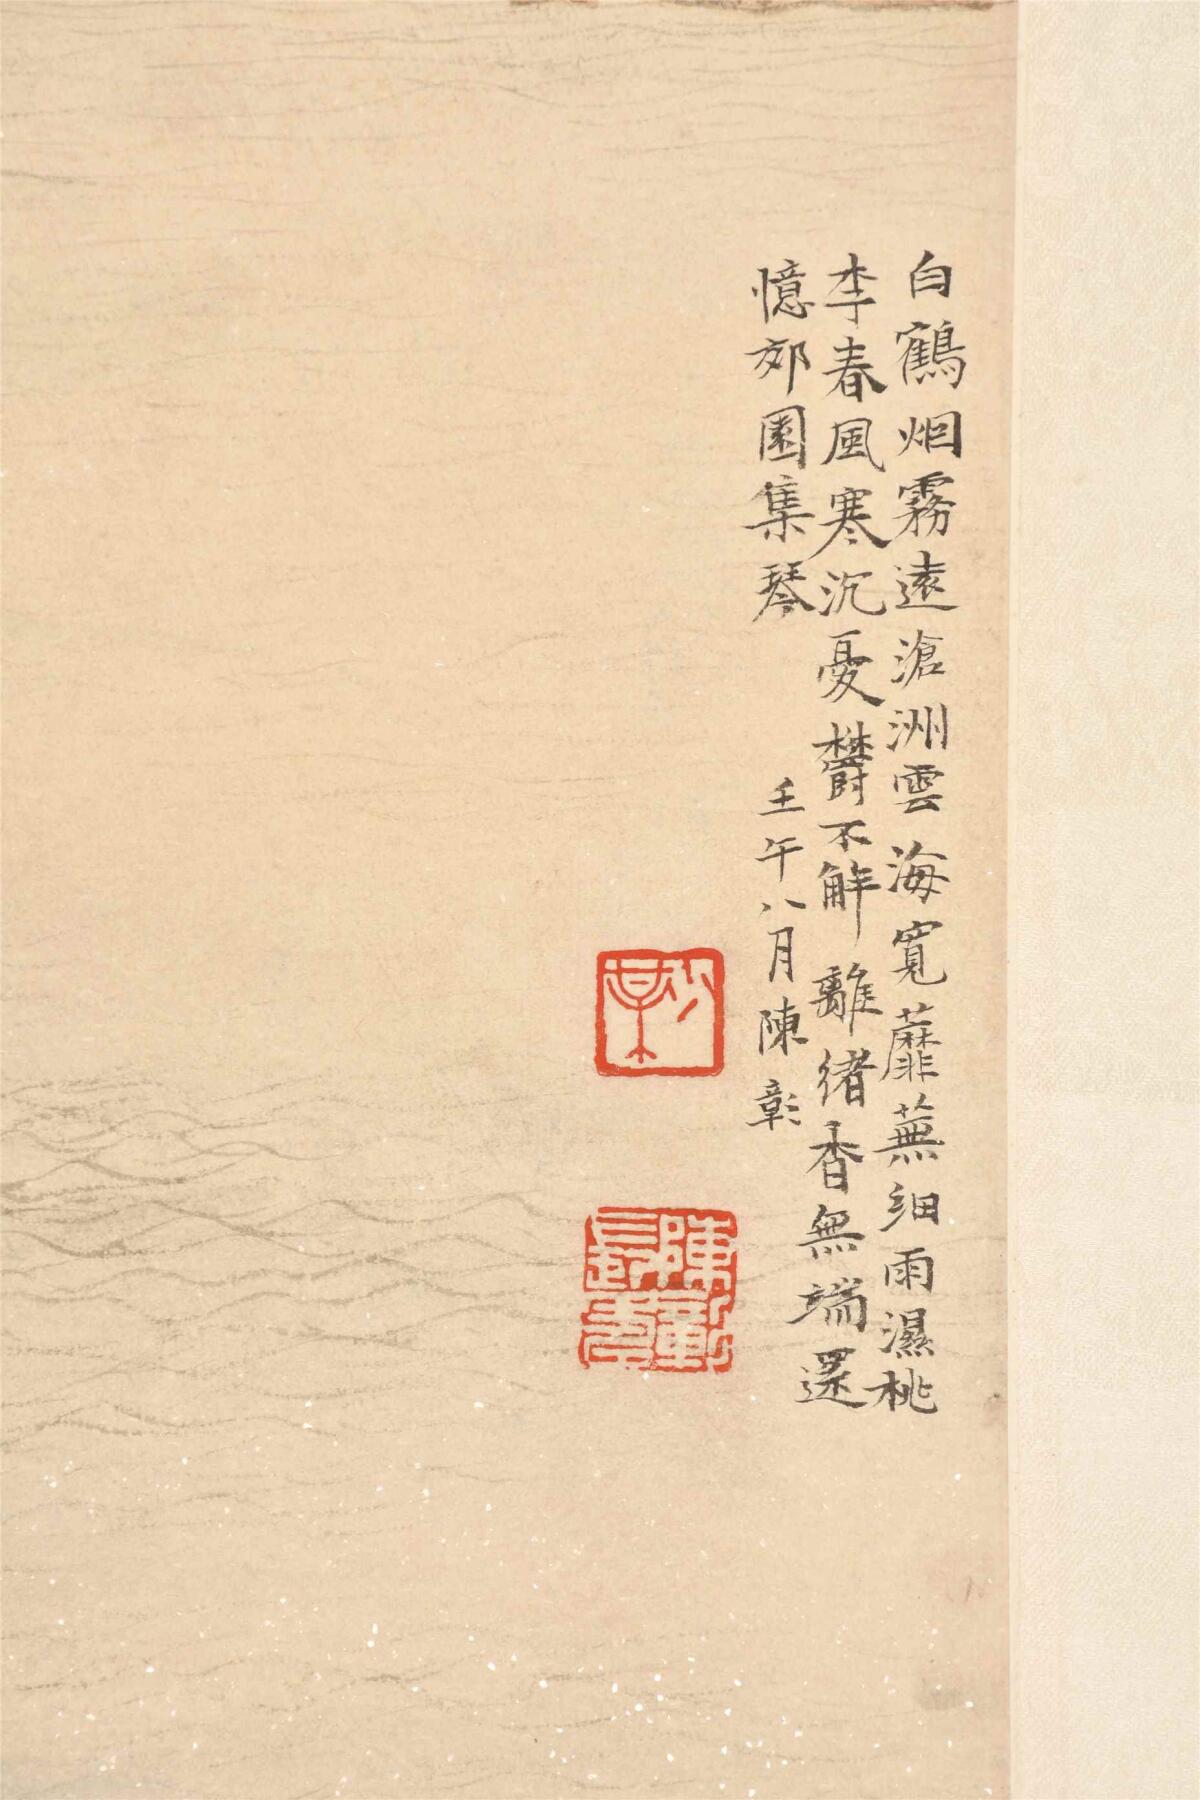 白鶴烟霧遠滄洲雲海寬蘼蕪細雨濕桃
李春風寒沉憂欝不解離緒香無端還
憶郊園集琴
壬午八月陳彰
彰
陳彰